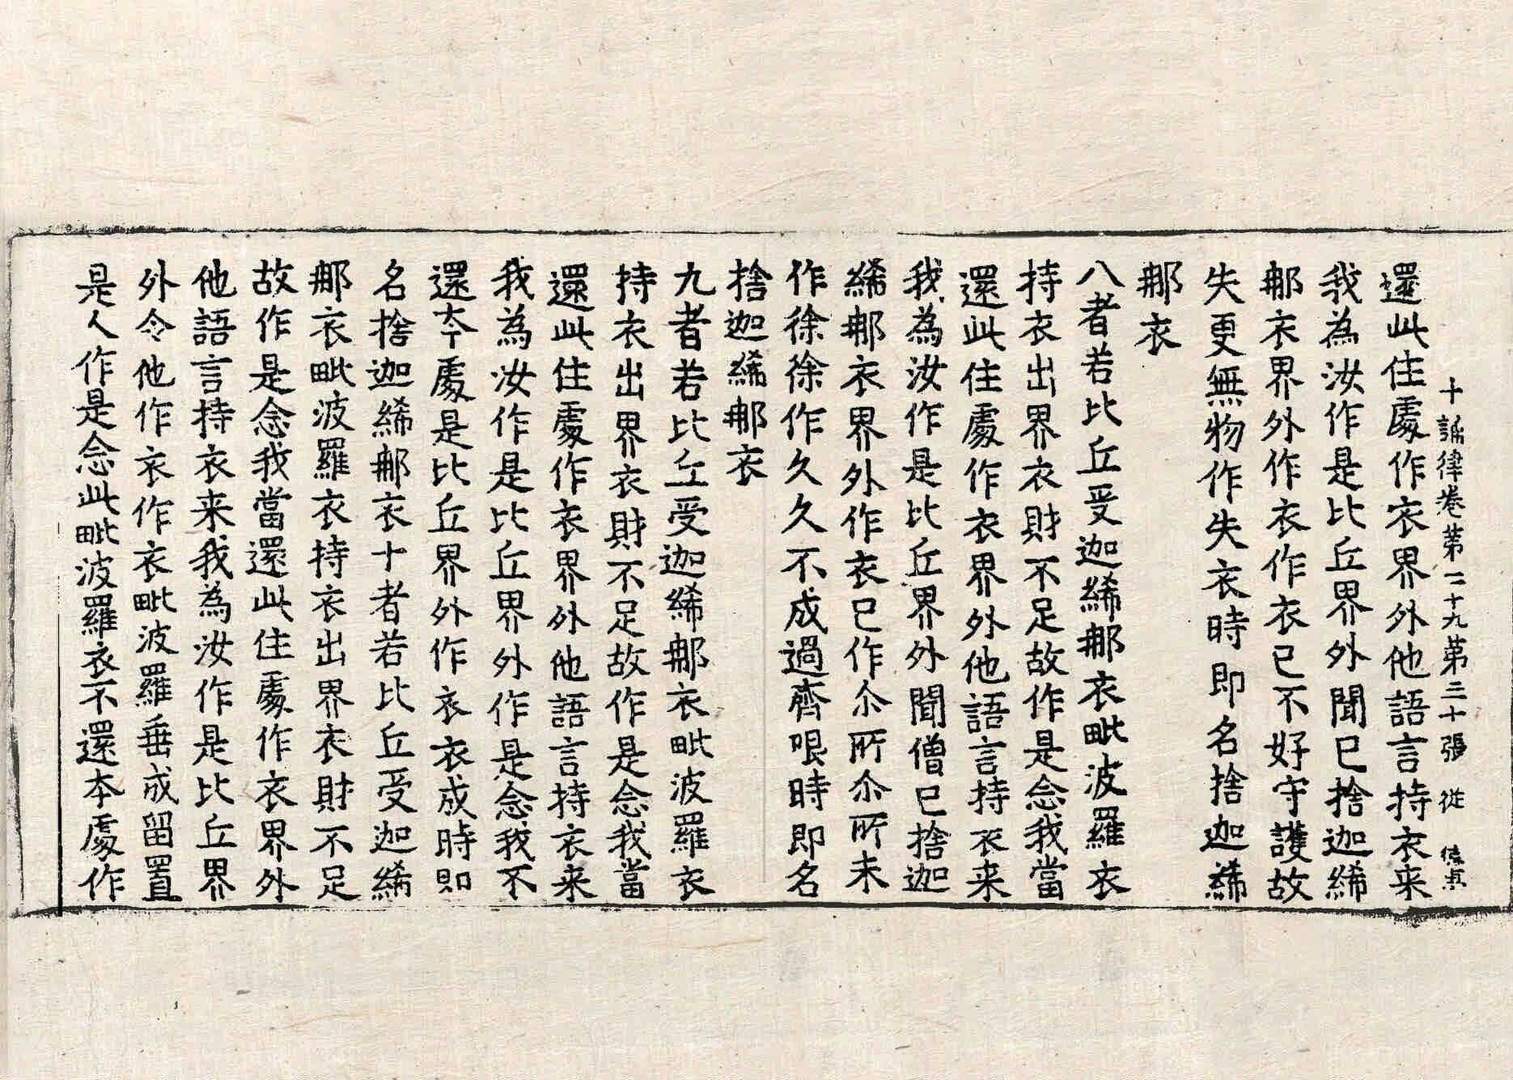 十誦律卷第二十九第三十張 從
還此住處作衣界外他語言持衣来
我為汝作是比丘界外聞已捨迦絺
那衣界外作衣作衣已不好守護故
失更無物作失衣時即名捨迦絺
那衣
八者若比丘受迦絺那衣毗波羅衣
持衣出界衣財不足故作是念我當
還此住處作衣界外他語言持衣来
我為汝作是比丘界外聞僧已捨迦
絺那衣界外作衣已作尒所尒所未
作徐徐作久久不成過齊限時即名
捨迦絺那衣
九者若比丘受迦絺那衣毗波羅衣
持衣出界衣財不足故作是念我當
還此住處作衣界外他語言持衣来
我為汝作是比丘界外作是念我不
還本處是比丘界外作衣衣成時即
名捨迦絺那衣十者若比丘受迦絺
那衣毗波羅衣持衣出界衣財不足
故作是念我當還此住處作衣界外
他語言持衣来我為汝作是比丘界
外令他作衣作衣毗波羅垂成留置
是人作是念此毗波羅衣不還本處作